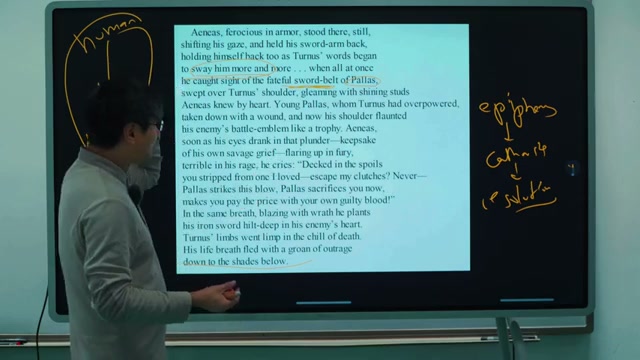 human
Aeneas, ferocious in armor, stood there, still,
shifting his gaze, and held his sword-arm back,
holding himself back too as Turnus' words began
to sway him more and more . . . when all at once
he caught sight of the fateful sword-belt of Pallas,
swept over Turnus' shoulder, gleaming with shining studs
Aeneas knew by heart. Young Pallas, whom Turnus had overpowered,
taken down with a wound, and now his shoulder flaunted
his enemy's battle-emblem like a trophy. Aeneas,
soon as his eyes drank in that plunder—keepsake
of his own savage grief—flaring up in fury,
terrible in his rage, he cries: "Decked in the spoils
you stripped from one I loved—escape my clutches? Never—
Pallas strikes this blow, Pallas sacrifices you now,
makes you pay the price with your own guilty blood!"
In the same breath, blazing with wrath he plants
his iron sword hilt-deep in his enemy's heart.
Turnus' limbs went limp in the chill of death.
His life breath fled with a groan of outrage
down to the shades below.
epiphany
resolution